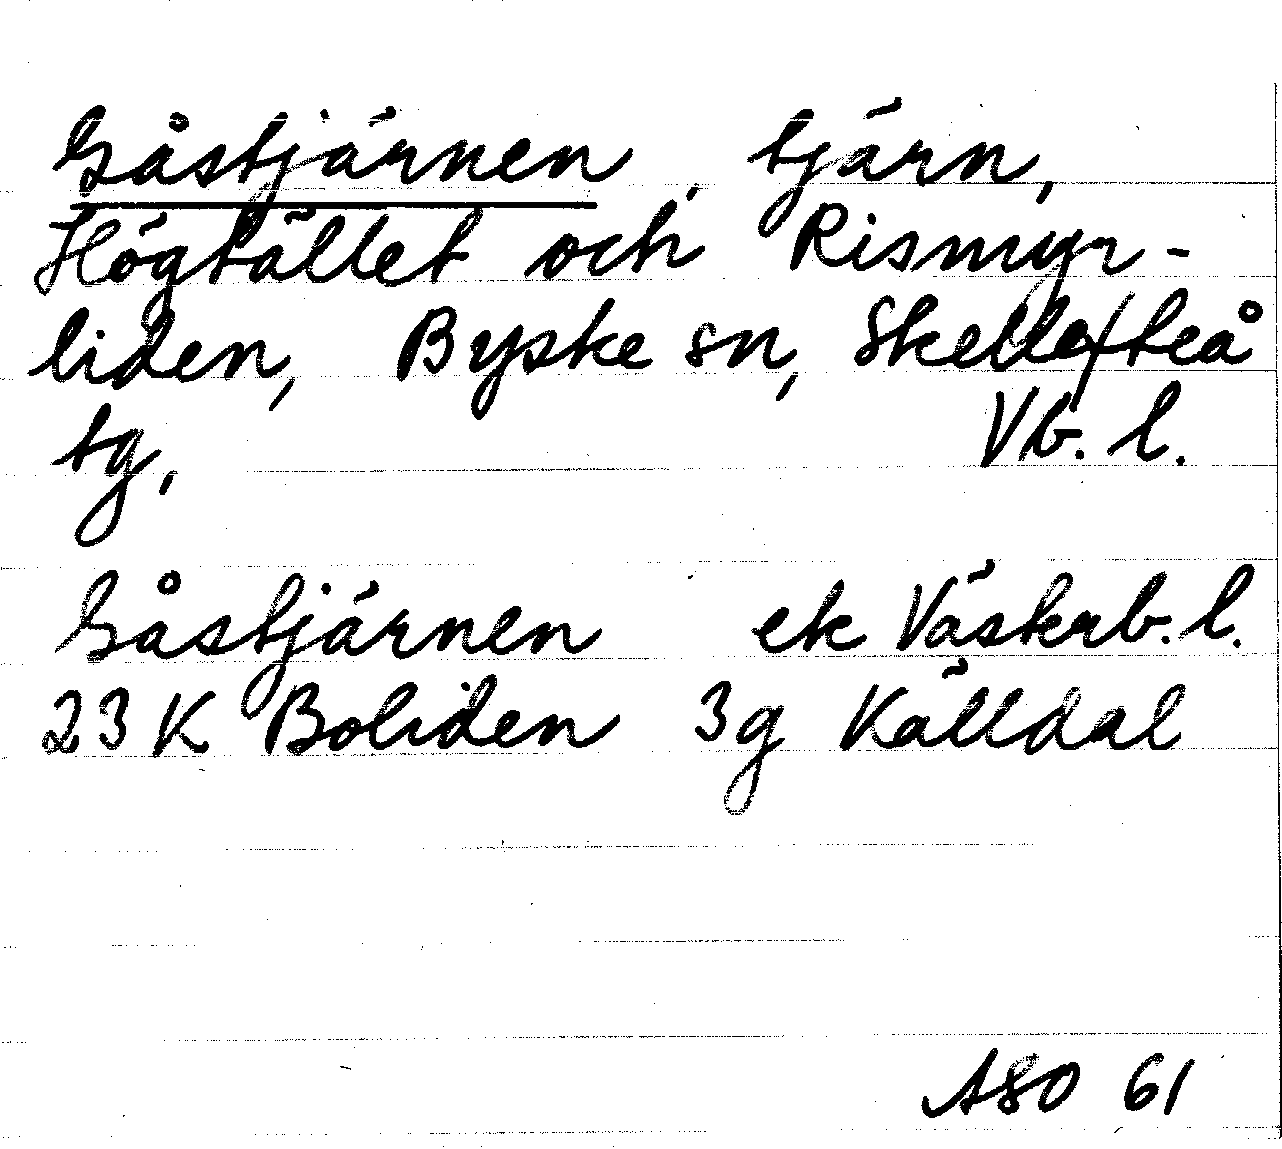 Gåstjärnen, tjärn,
Högtället och Rismyr-
liden, Byske sn, Skellefteå
tg, Vb. l.
Gåstjärnen ek Västerb. l.
23 K Boliden 3g Källdal
ASO 61